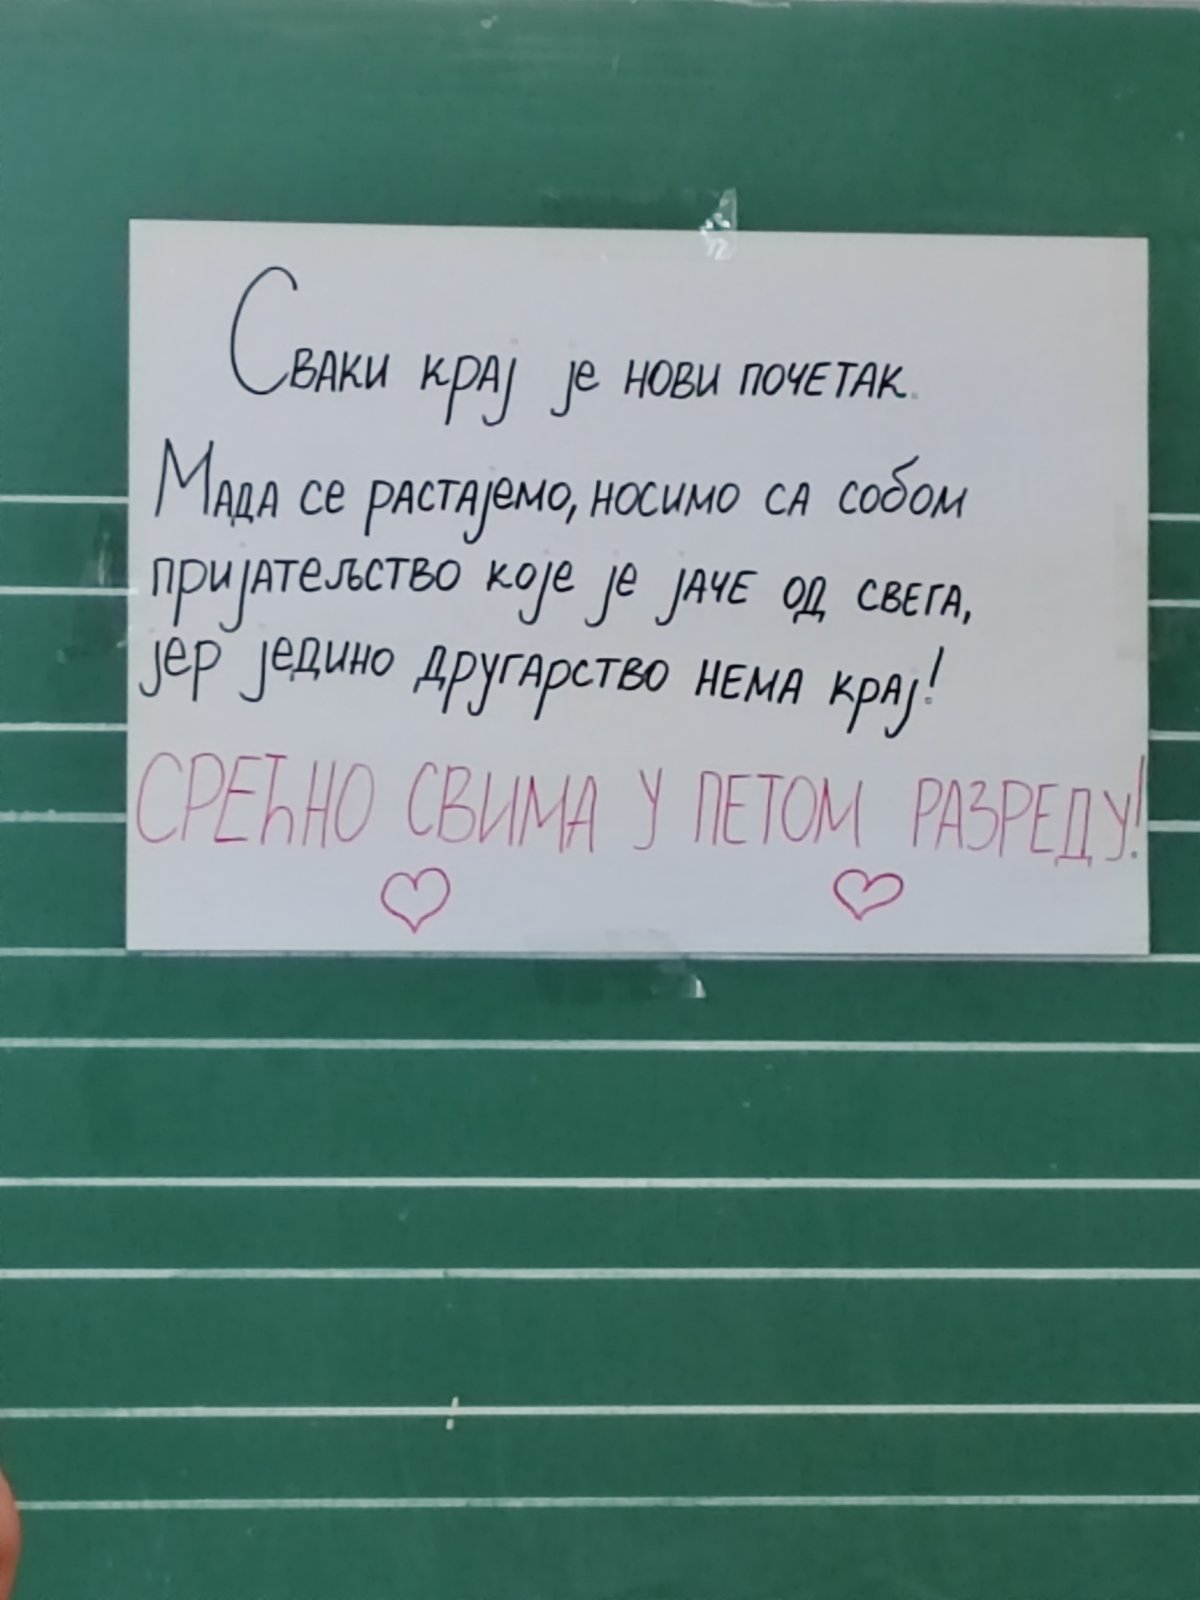 Сваки крај је нови почетак.
Мада се растајемо, носимо са собом
пријатељство које је јаче од свега,
јер једино другарство нема крај!
СРЕЋНО СВИМА У ПЕТОМ РАЗРЕДУ!